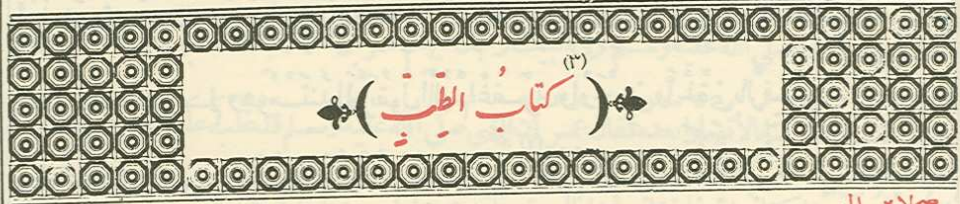 (٣)
(كتَابُ الطِّيبِ)